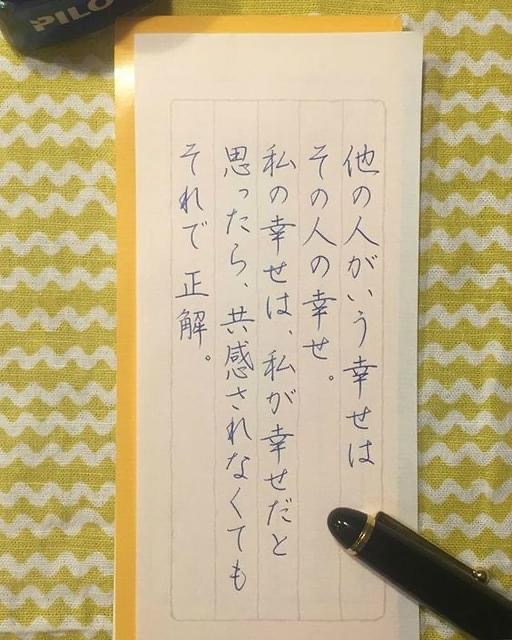 PILO
他の人がいう幸せは
その人の幸せ。
私の幸せは、私が幸せだと
思ったら、共感されなくても
それで正解。